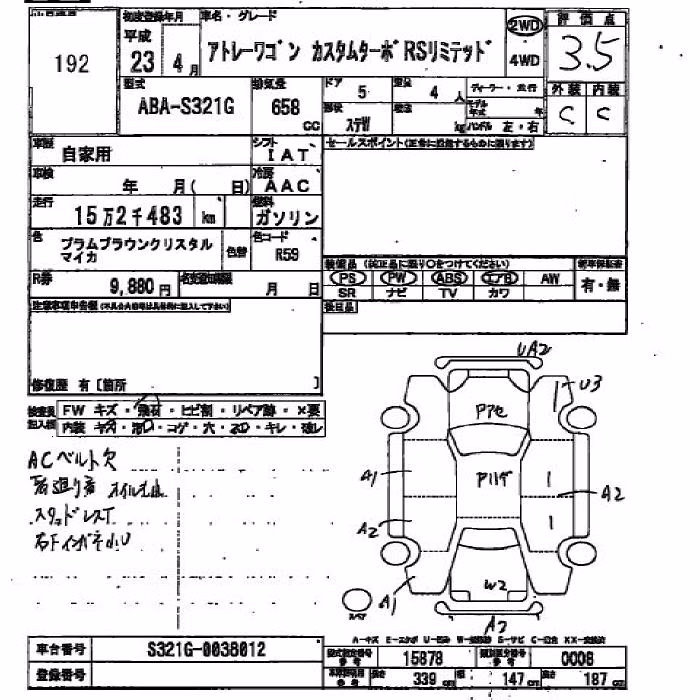 初度登録年月 車名・グレード 評価点
192 平成 23 4月 アトレーワゴン カスタムターボRSリミテッド 2WD 4WD 3.5
型式 排気量 ドア 5 定員 4人 ディーラー・並行 外装 内装
ABA-S321G 658 CC 形状 ステW 積載 kg モデル年式 年 ハンドル 左・右 C C
車歴 自家用 シフト IAT セールスポイント(正常に機能するものに限ります)
車検 年 月( 日) 冷房 AAC
走行 15万2千483 km 燃料 ガソリン
色 プラムブラウンクリスタルマイカ 色替 色コード R59
装備品 (純正品に限り○をつけてください) 新車保証書
R券 9,880円 名変期限 月 日 PS PW ABS エアB AW 有・無
SR ナビ TV カワ
注意事項申告欄
後日品
修復歴 有〔箇所 〕
検査員記入欄 FW キズ・飛石・ヒビ割・リペア跡・×要
内装 キズ・汚・コゲ・穴・ヌロ・キレ・破レ
ACベルト欠
オイルモレ
スタッドレスT
UA2
U3
Pアセ
A1
A2
A2
A1
W2
A2
スペア
A-キズ E-エクボ U-凹み W-補修跡 S-サビ C-腐食 XX-交換済
車台番号 S321G-0038012 型式指定番号 参考 15878 類別区分番号 参考 0008
登録番号 参考 長さ 339 cm 幅 147 cm 高さ 187 cm